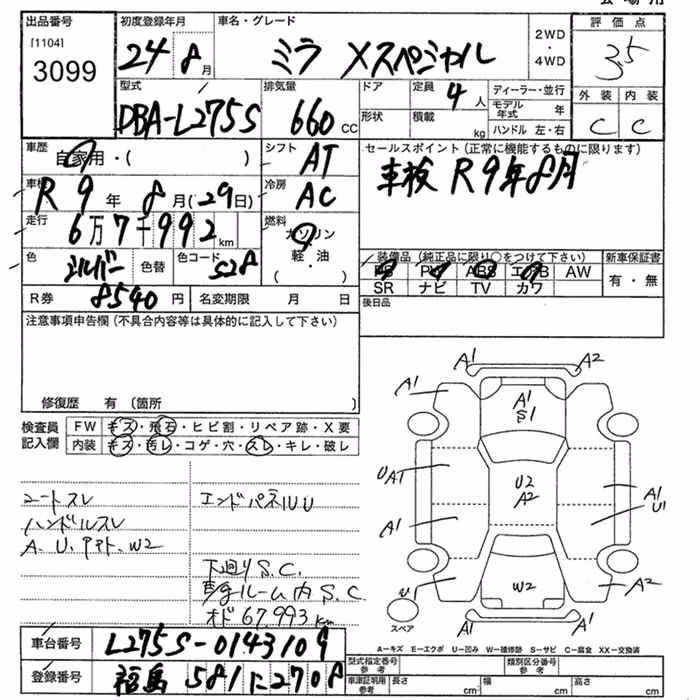 出品番号
[1104]
3099
初度登録年月
24 8月
車名・グレード
ミラ Xスペシャル
2WD
・
4WD
評価点
3.5
外装 内装
C C
型式
DBA-L275S
排気量
660 CC
ドア
形状
定員
4人
積載
kg
ディーラー・並行
モデル年式 年
ハンドル 左・右
車歴
自家用・( )
シフト
AT
セールスポイント(正常に機能するものに限ります)
車検 R9年8月
車検
R 9年 8月(29日)
冷房
AC
走行
6万7千992km
燃料
ガソリン
軽・油
( )
色
シルバー
色替
色コード
S28
装備品(純正品に限り○をつけて下さい)
PS PW ABS エアB AW
SR ナビ TV カワ
新車保証書
有・無
R券 8540円
名変期限 月 日
後日品
注意事項申告欄(不具合内容等は具体的に記入して下さい)
修復歴 有 (箇所
検査員記入欄
FW キズ・飛石・ヒビ割・リペア跡・X要
内装 キズ・汚レ・コゲ・穴・スレ・キレ・破レ
シートスレ
ハンドルスレ
A、U、アト、W2
エンドパネルU
下廻りS.C.
ルーム内S.C
オド67,993km
A1 A2
A1
A1
S1
UAT
U2
A2
A1
U1
A1
U1
W2
A2
A1 A1
スペア
A-キズ E-エクボ U-凹み W-補修跡 S-サビ C-腐食 XX-交換済
車台番号
L275S-0143109
登録番号
福島 581 に 2708
型式指定番号
参考
類別区分番号
参考
車検証実用
参考
長さ cm
幅 cm
高さ cm